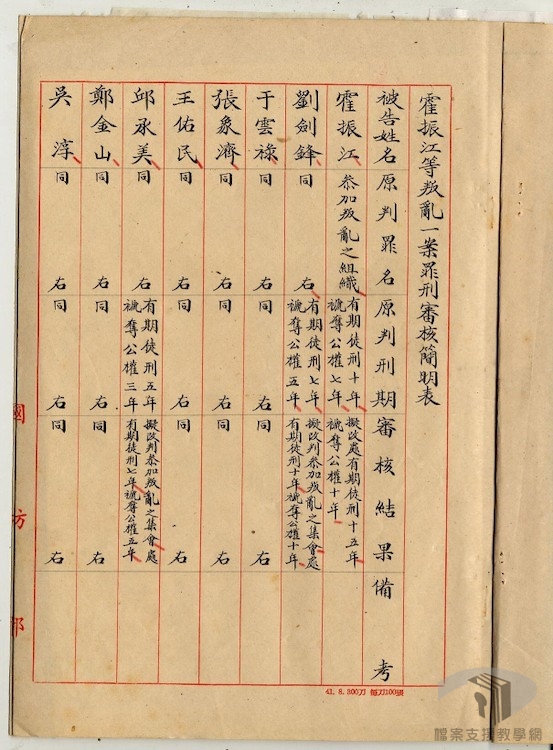 霍振江等叛亂一案罪刑審核簡明表
被告姓名 原判罪名 原判刑期 審核結果 備考
霍振江 參加叛亂之組織 有期徒刑十年褫奪公權七年 擬改處有期徒刑十五年褫奪公權十年
劉劍鋒 同右 有期徒刑七年褫奪公權五年 擬改判參加叛亂之集會處有期徒刑十年褫奪公權十年
于雲祿 同右 同右 同右
張象濟 同右 同右 同右
王佑民 同右 同右 同右
邱承美 同右 有期徒刑五年褫奪公權三年 擬改判參加叛亂之集會處有期徒刑七年褫奪公權五年
鄭金山 同右 同右 同右
吳淳 同右 同右 同右
國防部
41. 8. 300刀 每刀100張
檔案支援教學網